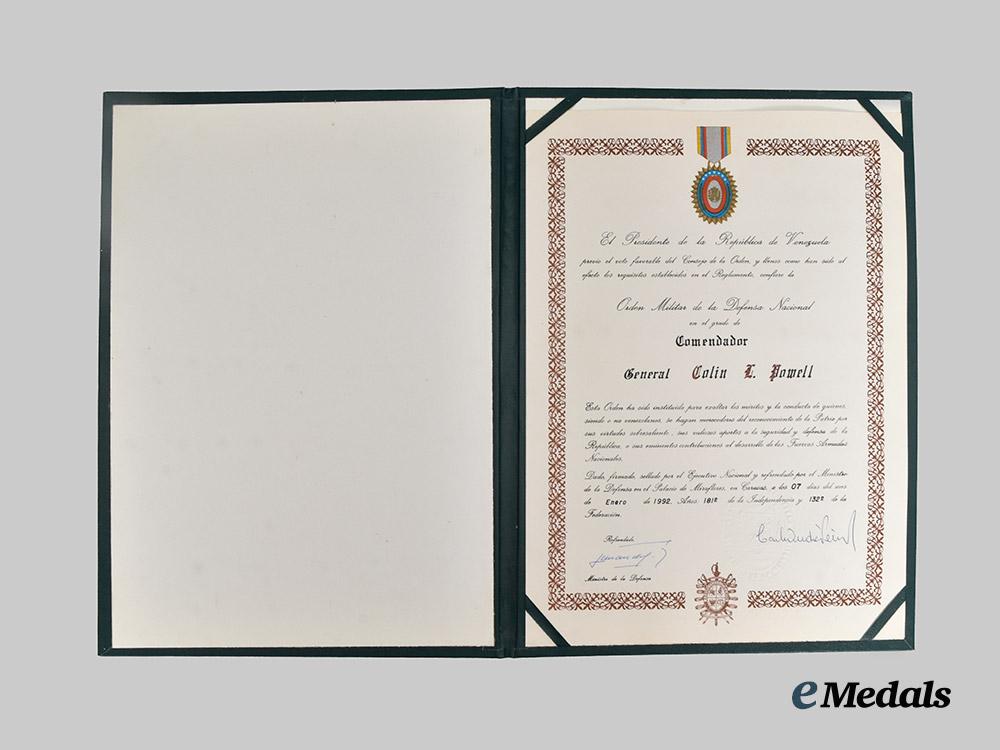 El Presidente de la República de Venezuela
previo el voto favorable del Consejo de la Orden, y llenos como han sido al
efecto los requisitos establecidos en el Reglamento, confiere la
Orden Militar de la Defensa Nacional
en el grado de
Comendador
General Colin L. Powell
Esta Orden ha sido instituida para exaltar los méritos y la conducta de quienes,
siendo o no venezolanos, se hagan merecedores del reconocimiento de la Patria por
sus virtudes sobresalientes, sus valiosos aportes a la seguridad y defensa de la
República, o sus eminentes contribuciones al desarrollo de las Fuerzas Armadas
Nacionales.
Dado, firmado, sellado por el Ejecutivo Nacional y refrendado por el Ministro
de la Defensa en el Palacio de Miraflores, en Caracas, a los 07 días del mes
de Enero de 1992. Años: 181º de la Independencia y 132º de la
Federación.
Refrendado
Ministro de la Defensa
eMedals